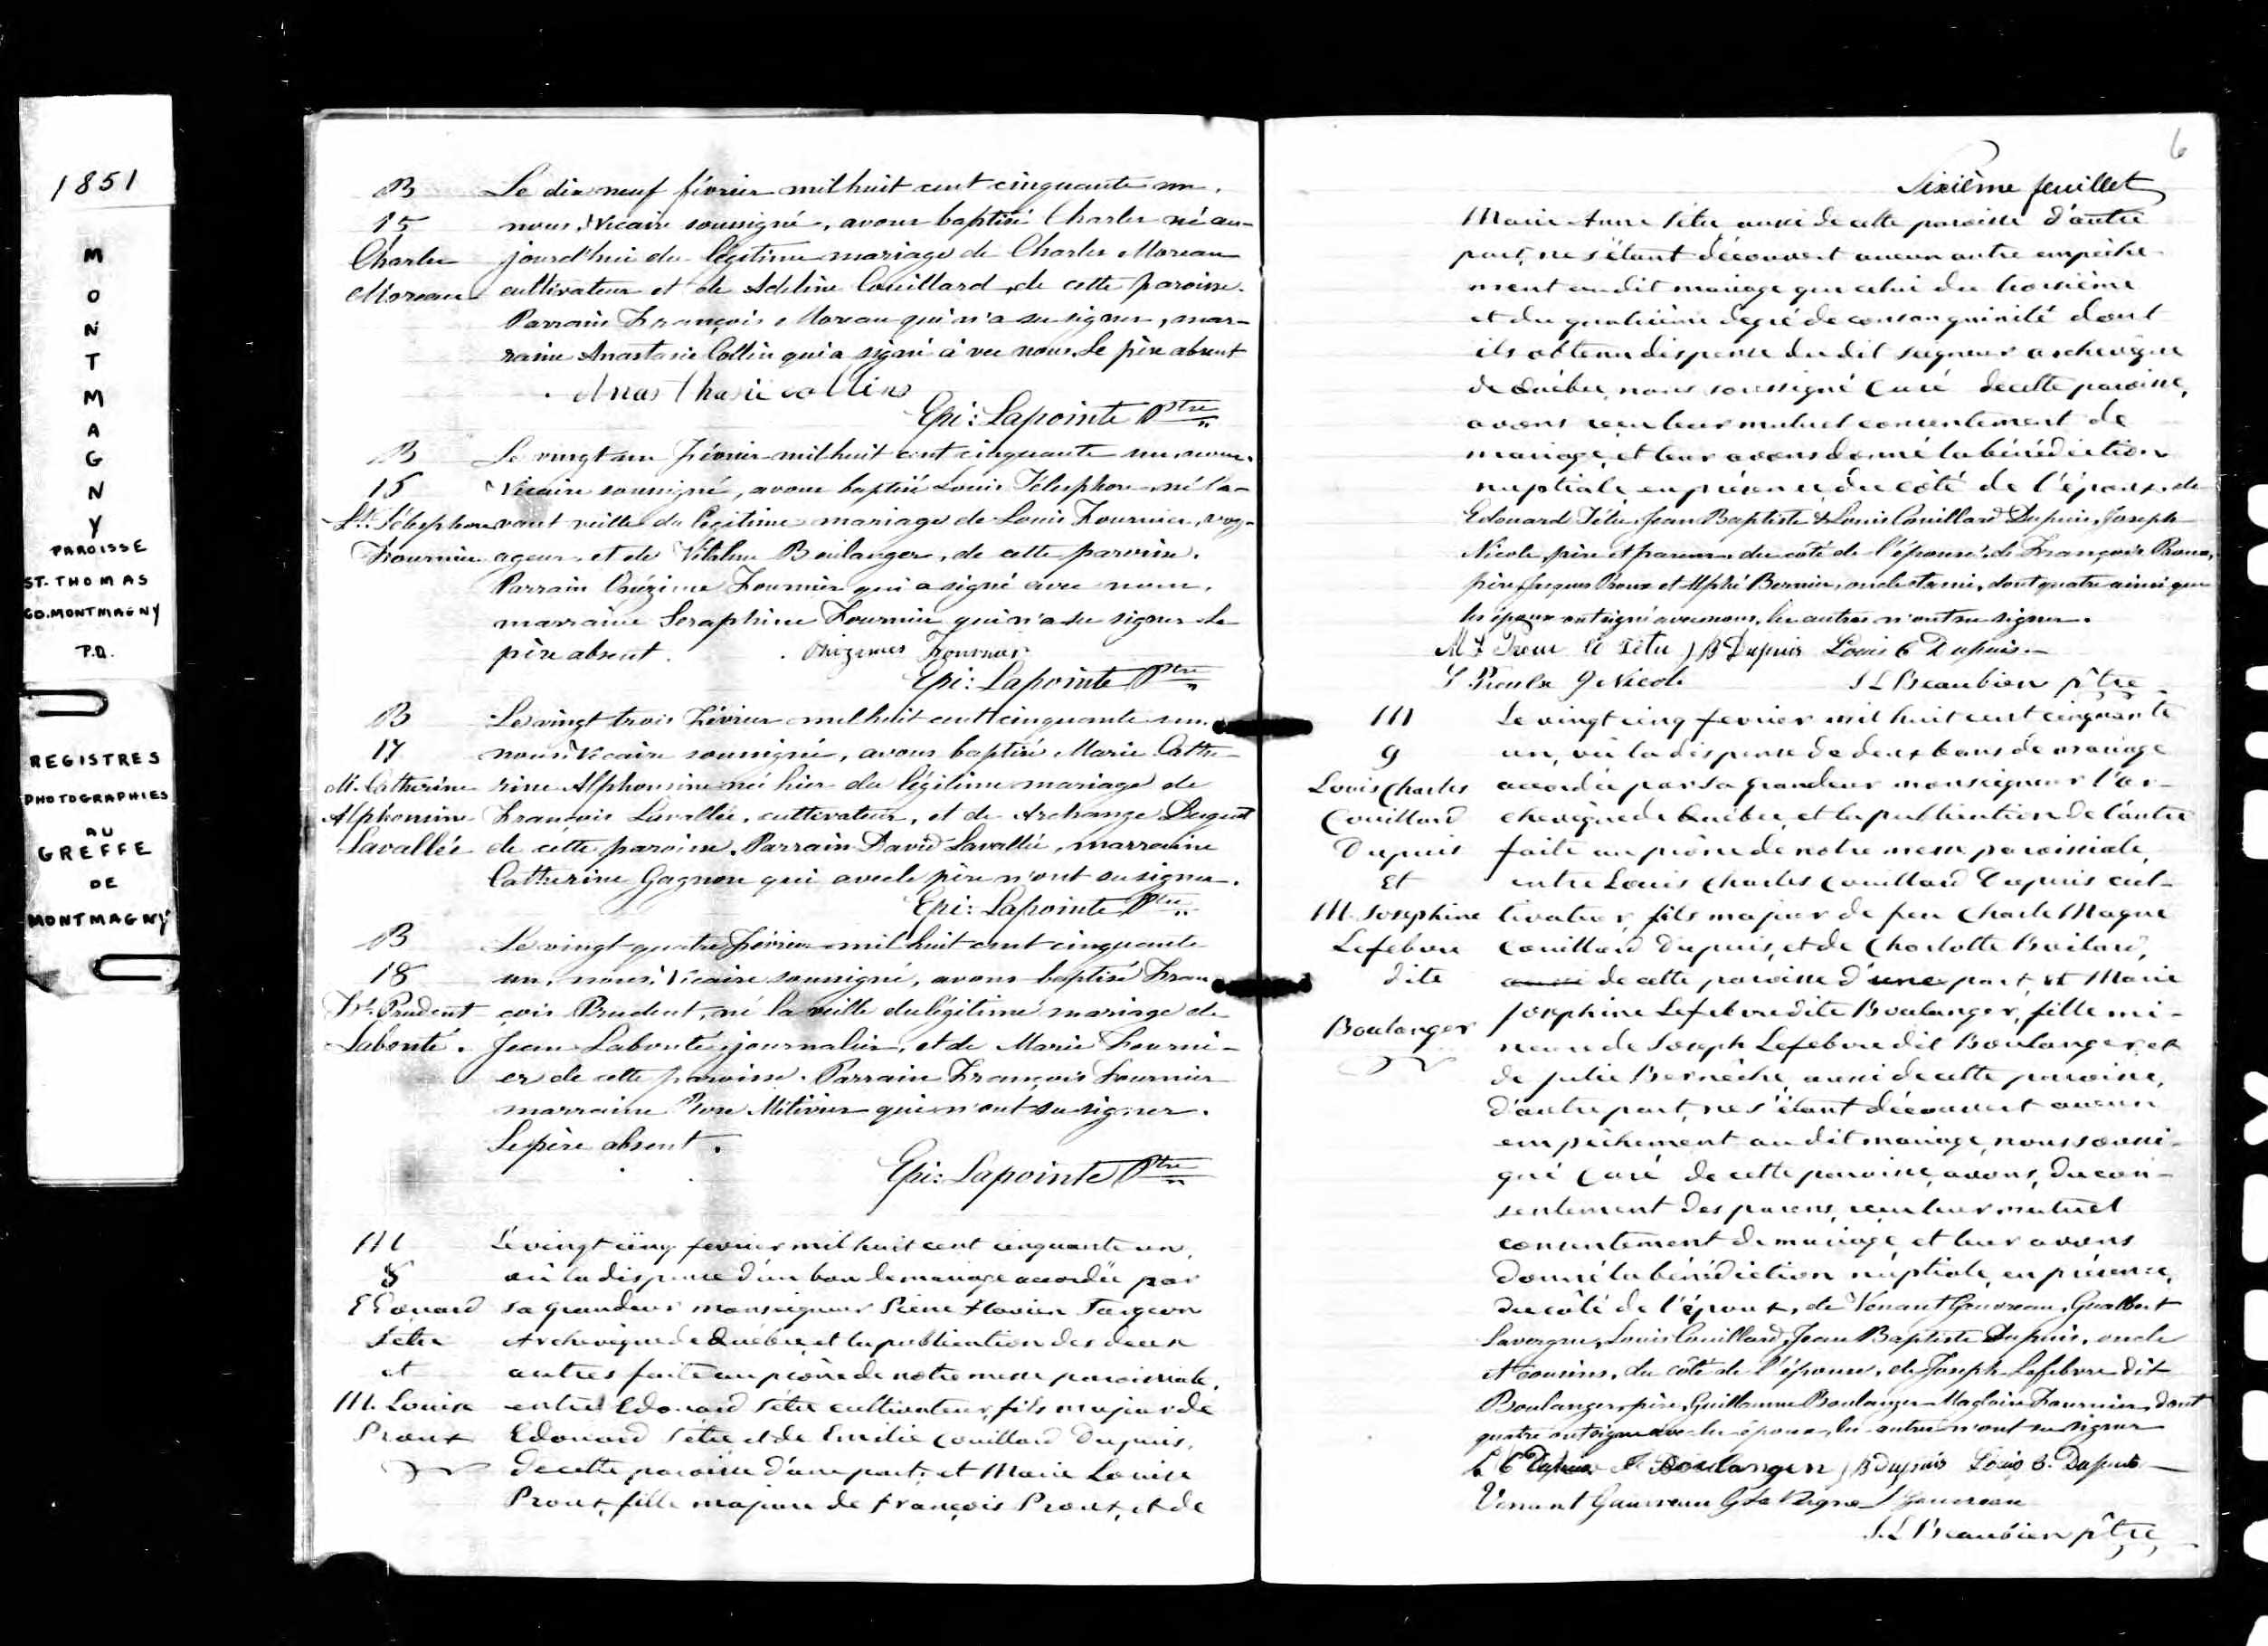 1851
M
O
N
T
M
A
G
N
Y
PAROISSE
ST. THOMAS
CO. MONTMAGNY
P.Q.
REGISTRES
PHOTOGRAPHIES
AU
GREFFE
DE
MONTMAGNY
B
15
Charles
Moreau
Le dix neuf février mil huit cent cinquante un,
nous, Vicaire soussigné, avons baptisé Charles né au-
jourd'hui du légitime mariage de Charles Moreau
cultivateur et de Adéline Couillard, de cette paroisse.
Parrain François Moreau qui n'a su signer, mar-
raine Anastasie Collin qui a signé avec nous. Le père absent
Anasthasie Collin
Epi: Lapointe Ptre
B
15
Ls. Télesphore
Fournier
Le vingt un février mil huit cent cinquante un, nous,
Vicaire soussigné, avons baptisé Louis Télesphore né l'a-
vant veille du légitime mariage de Louis Fournier, voy-
ageur, et de Vitaline Boulanger, de cette paroisse.
Parrain Onézime Fournier qui a signé avec nous,
marraine Seraphine Fournier qui n'a su signer. Le
père absent. Onezimes Fournier
Epi: Lapointe Ptre
B
17
M. Catherine
Alphonsine
Lavallée
Le vingt trois Février mil huit cent cinquante un,
nous, Vicaire soussigné, avons baptisé Marie Cathe-
rine Alphonsine née hier du légitime mariage de
François Lavallée, cultivateur, et de Archange
de cette paroisse. Parrain David Lavallée, marraine
Catherine Gagnon qui avec le père n'ont su signer.
Epi: Lapointe Ptre
B
18
Frs. Prudent
Labonté.
Le vingt quatre février mil huit cent cinquante
un, nous, Vicaire soussigné, avons baptisé Fran-
çois Prudent, né la veille du légitime mariage de
Jean Labonté, journalier, et de Marie Fourni-
er de cette paroisse. Parrain François Fournier
marraine Rose Métivier qui n'ont su signer.
Le père absent.
Epi: Lapointe Ptre
M
8
Edouard
Tétu
et
M. Louise
Proux
Le vingt cinq fevrier mil huit cent cinquante un,
vû la dispense d'un ban de mariage accordée par
sa grandeur monseigneur Pierre Flavien Turgeon
Archevêque de Québec et la publication des deux
autres faite au prône de notre messe paroissiale,
entre Edouard Tétu cultivateur, fils majeur de
Edouard Tétu et de Emilie Couillard Dupuis,
de cette paroisse d'une part; et Marie Louise
Proux, fille majeure de François Proux, et de
6
Sixième feuillet
Marie Anne Tétu aussi de cette paroisse d'autre
part, ne s'étant découvert aucun autre empêche-
ment au dit mariage que celui du troisième
et du quatrième degré de consanguinité dont
ils obtenu dispense du dit seigneur archevêque
de Québec, nous soussigné Curé de cette paroisse,
avons reçu leur mutuel consentement de
mariage, et leur avons donné la bénédiction
nuptiale, en présence, du côté de l'époux, de
Edouard Tétu, Jean Baptiste & Louis Couillard Dupuis, Joseph
Nicole, père et parens, du côté de l'épouse, de François Proux,
père, Jacques Proux et Alphé Bernier, oncle et ami, dont quatre ainsi que
les époux ont signé avec nous, les autres n'ont su signer.
M L Proux E Tétu JB Dupuis Louis C Dupuis
J Nicole S L Beaubien ptre
M
9
Louis Charles
Couillard
Dupuis
Et
M. Josephine
Lefebvre
dite
Boulanger
Le vingt cinq fevrier mil huit cent cinquante
un, vû la dispense de deux bans de mariage
accordée par sa grandeur monseigneur l'ar-
chevêque de Québec, et la publication de l'autre
faite au prône de notre messe paroissiale,
entre Louis Charles Couillard Dupuis cul-
tivateur, fils majeur de feu Charle Magne
Couillard Dupuis, et de Charlotte Boilard,
aussi de cette paroisse d'une part, et Marie
Josephine Lefebvre dite Boulanger, fille mi-
neure de Joseph Lefebvre dit Boulanger, et
de Julie Bernèche, aussi de cette paroisse,
d'autre part, ne s'étant découvert aucun
empêchement au dit mariage, nous soussi-
gné Curé de cette paroisse, avons, du con-
sentement des parens, reçu leur mutuel
consentement de mariage, et leur avons
donné la bénédiction nuptiale, en présence,
du côté de l'époux, de Venant Gauvreau, Gualbert
Lavergne, Louis Couillard, Jean Baptiste Dupuis, oncle
et cousins, du côté de l'épouse, de Joseph Lefebvre dit
Boulanger, père, Guillaume Boulanger Magloire Fournier, dont
quatre ont signé avec les époux, les autres n'ont su signer
L C Dupuis J Boulanger JB Dupuis Louis C. Dupuis
Venant Gauvreau G LaVergne J Gauvreau
S. L Beaubien ptre